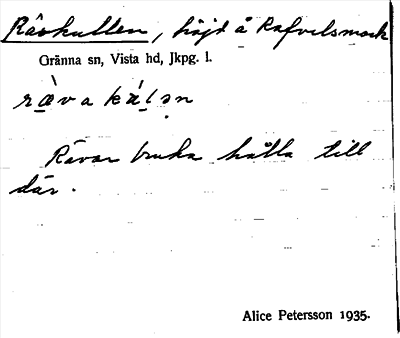 Rävkullen, höjd å Rafvelsmark
Gränna sn, Vista hd, Jkpg. l.
rævakälən
Rävar bruka hålla till
där.
Alice Petersson 1935.